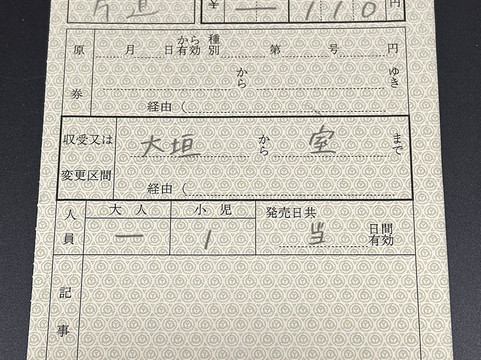 片道 ¥ 一 110 円
原券 月 日から有効 種別 第 号 円
から ゆき
経由(
収受又は変更区間 大垣 から 室 まで
経由(
人員 大人 小児 発売日共
一 1 当 日間有効
記事